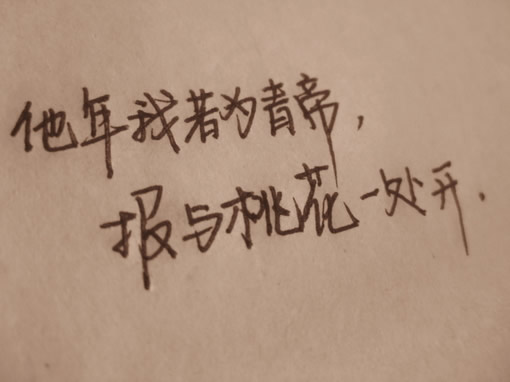 他年我若为青帝，
报与桃花一处开．